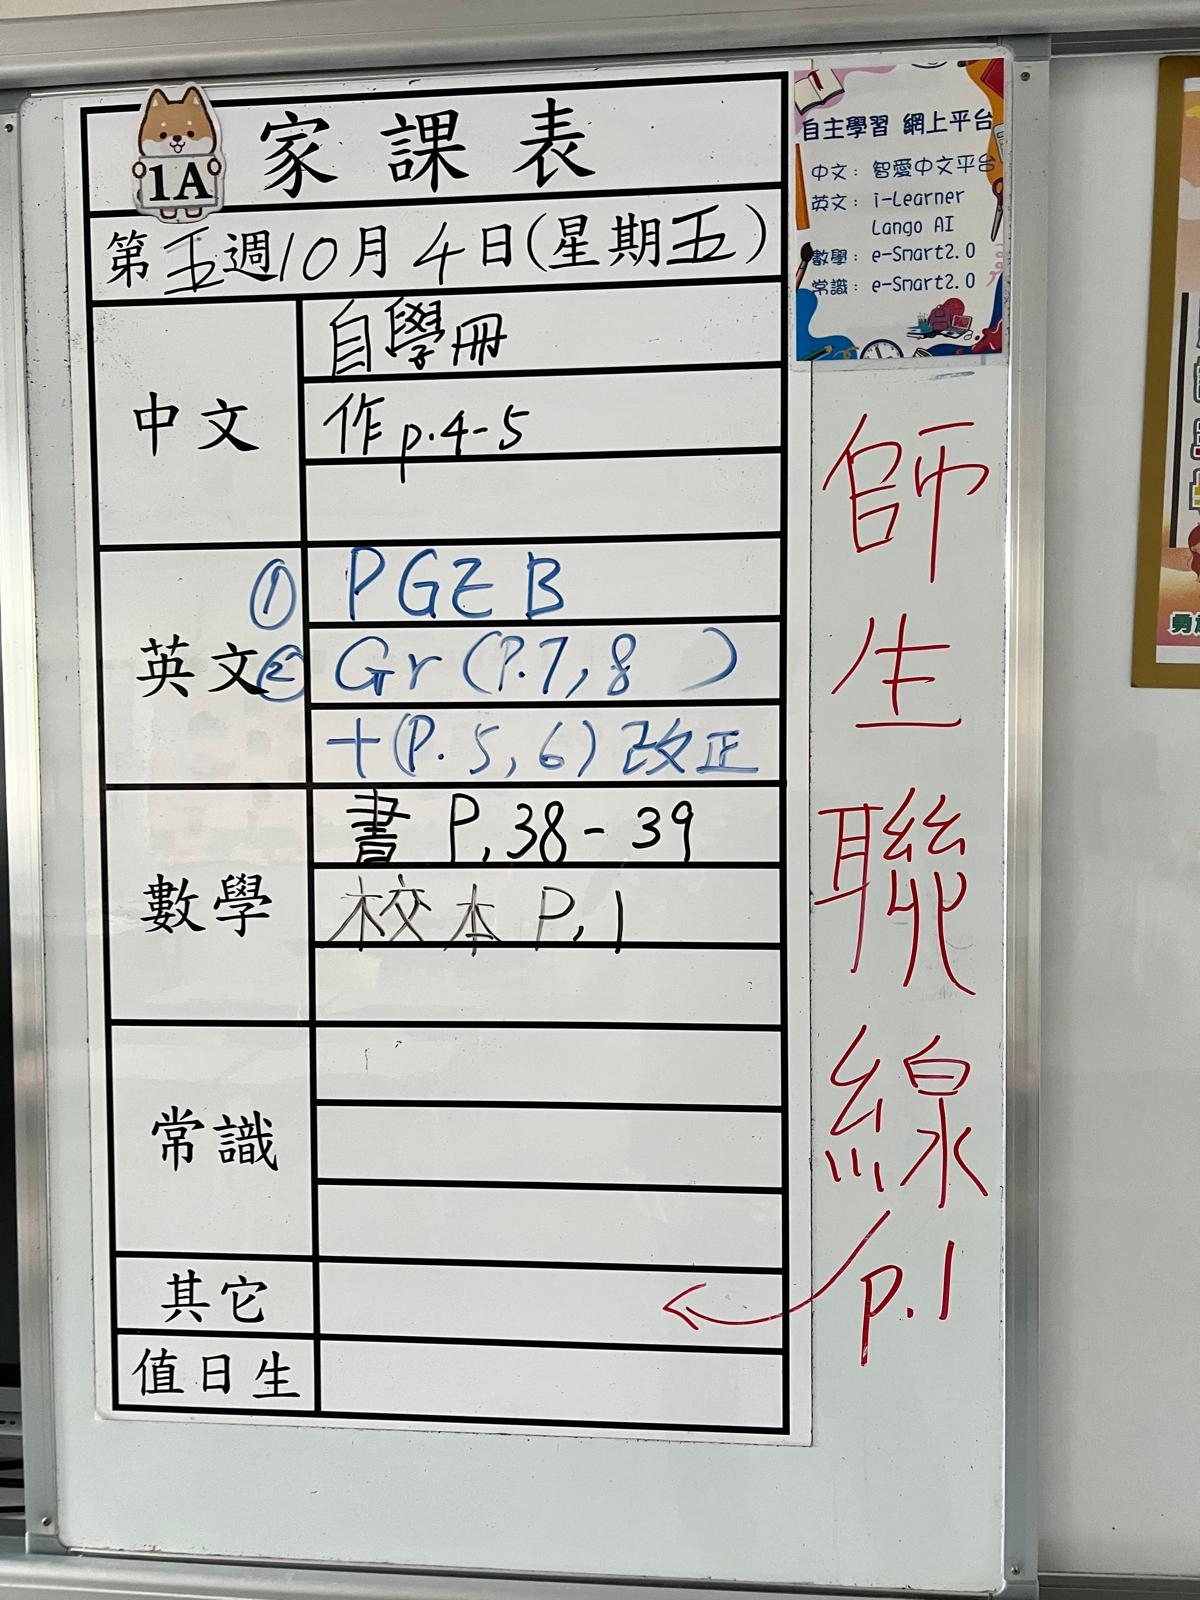 1A
家課表
第五週10月4日(星期五)
中文
自學冊
作 p.4-5
英文
① PGE B
② Gr (P.7,8 )
+(P.5,6) 改正
數學
書 P.38-39
校本 P.1
常識
其它
值日生
自主學習 網上平台
中文: 智愛中文平台
英文: i-Learner
Lango AI
數學: e-Smart2.0
常識: e-Smart2.0
師生聯線 p.1